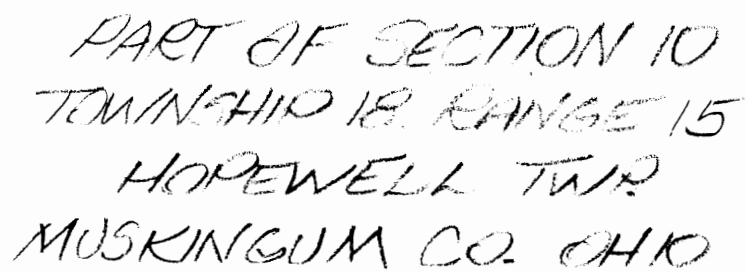 PART OF SECTION 10
TOWNSHIP 18 RANGE 15
HOPEWELL TWP.
MUSKINGUM CO. OHIO